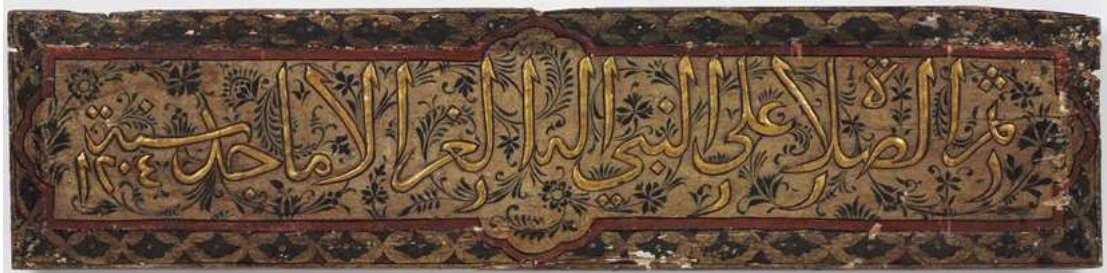 ثم الصلاة على النبي اله الغر الاماجد سنة ١٢٠٤